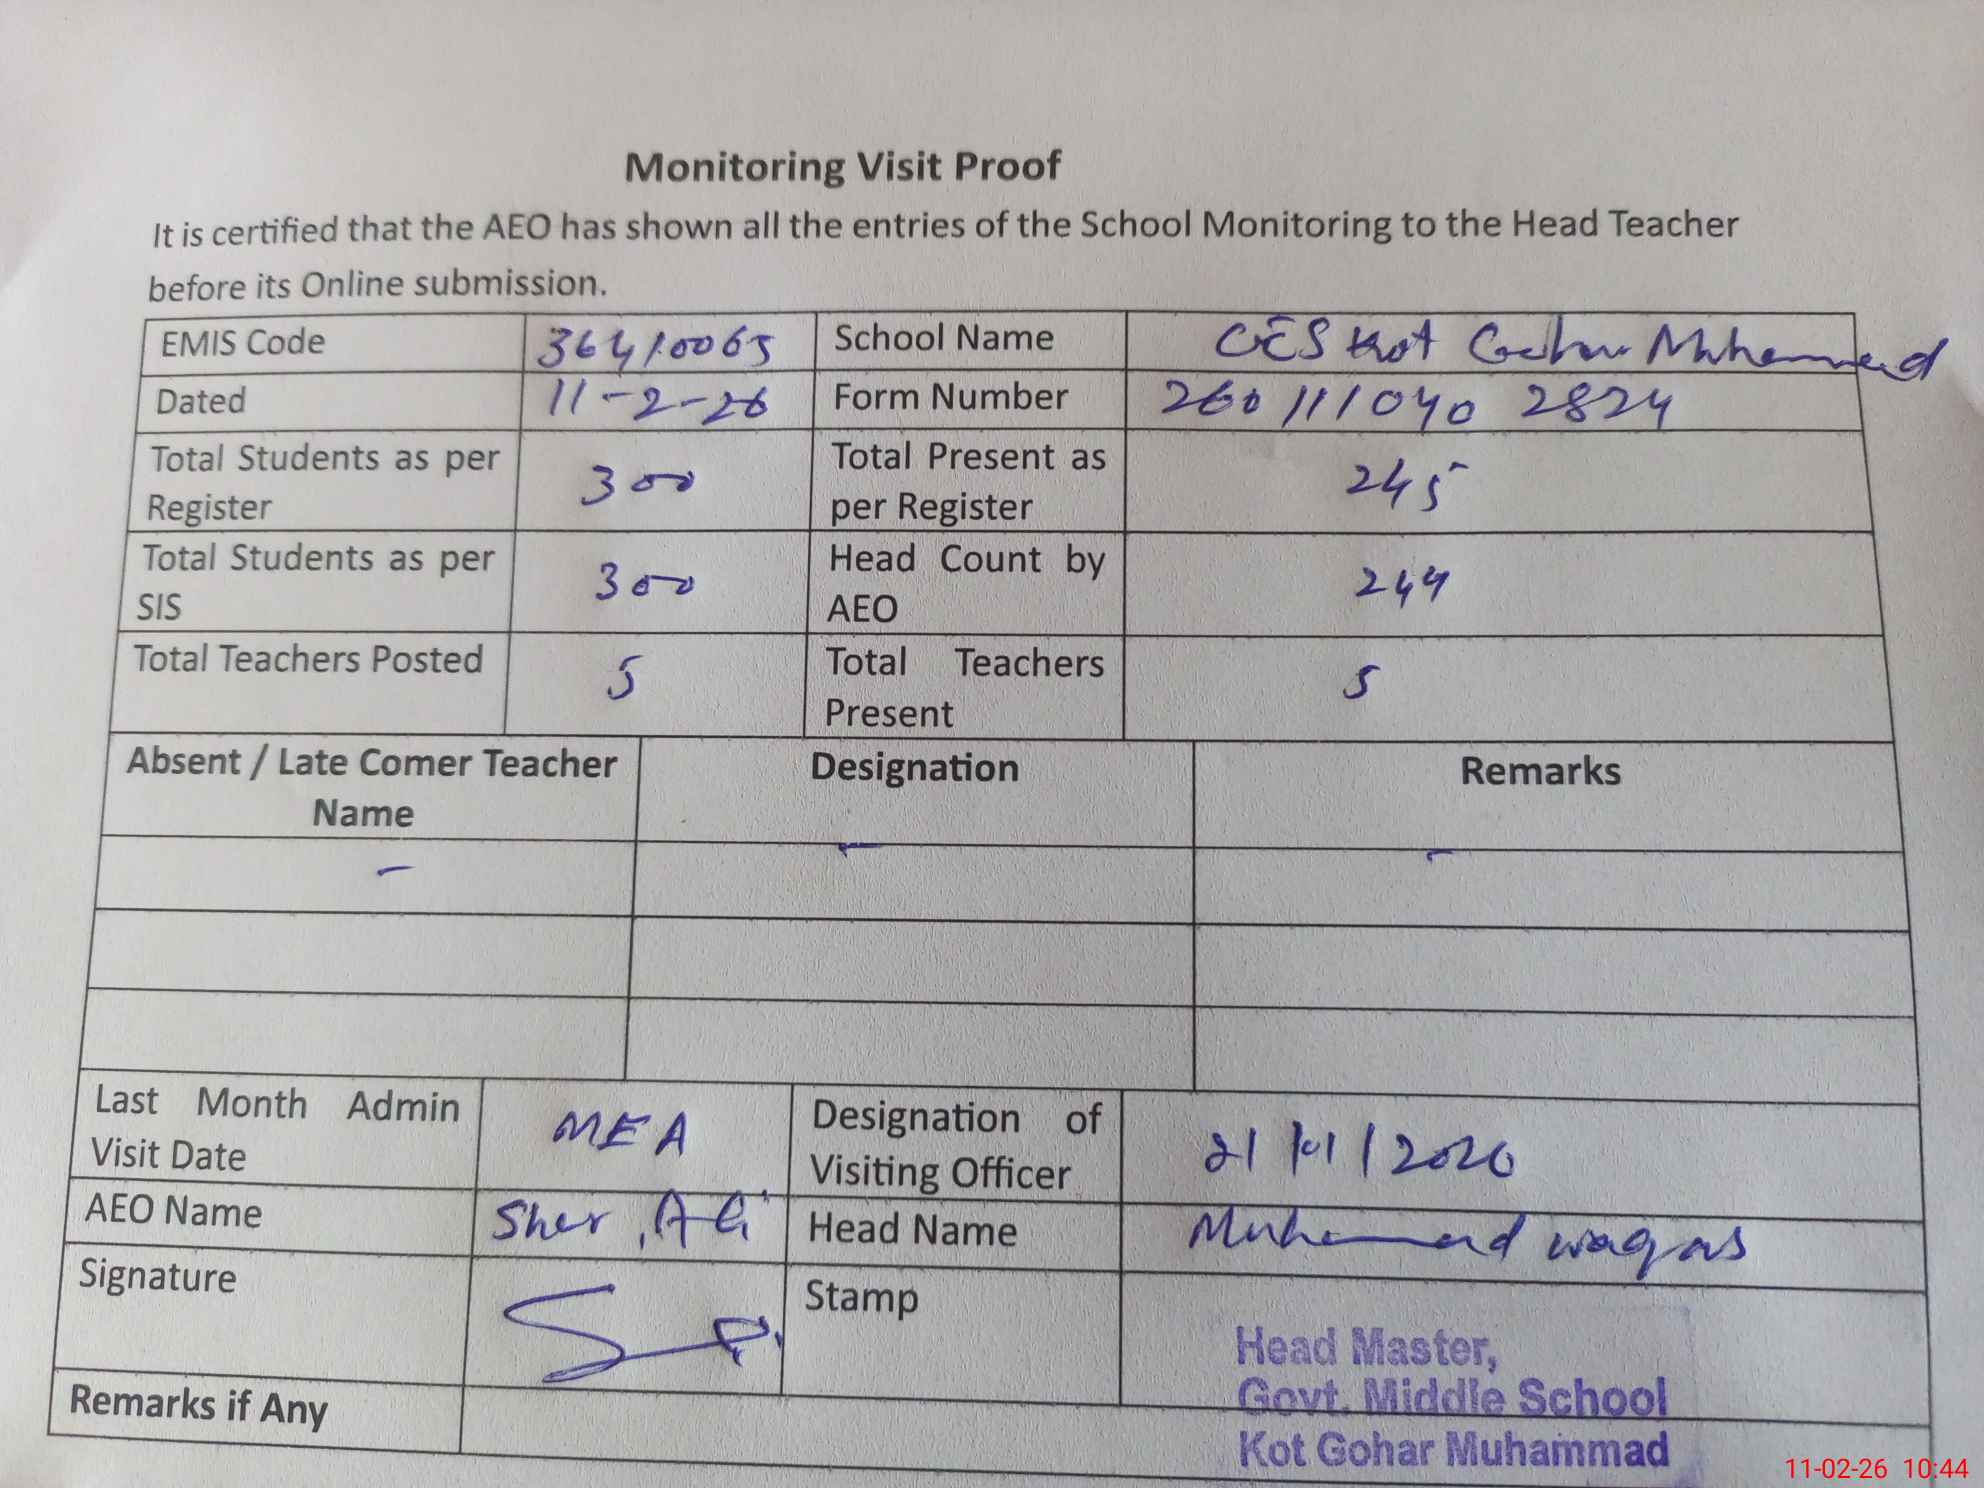 Monitoring Visit Proof
It is certified that the AEO has shown all the entries of the School Monitoring to the Head Teacher
before its Online submission.
EMIS Code 36410065 School Name GES Kot Gohar Muhammad
Dated 11-2-26 Form Number 260111040 2824
Total Students as per Register 300 Total Present as per Register 245
Total Students as per SIS 300 Head Count by AEO 244
Total Teachers Posted 5 Total Teachers Present 5
Absent / Late Comer Teacher Name Designation Remarks
- - -
Last Month Admin Visit Date MEA Designation of Visiting Officer
AEO Name Sher Ali Head Name Muhammad waqas
Signature Stamp
Head Master,
Govt. Middle School
Kot Gohar Muhammad
Remarks if Any
11-02-26 10:44